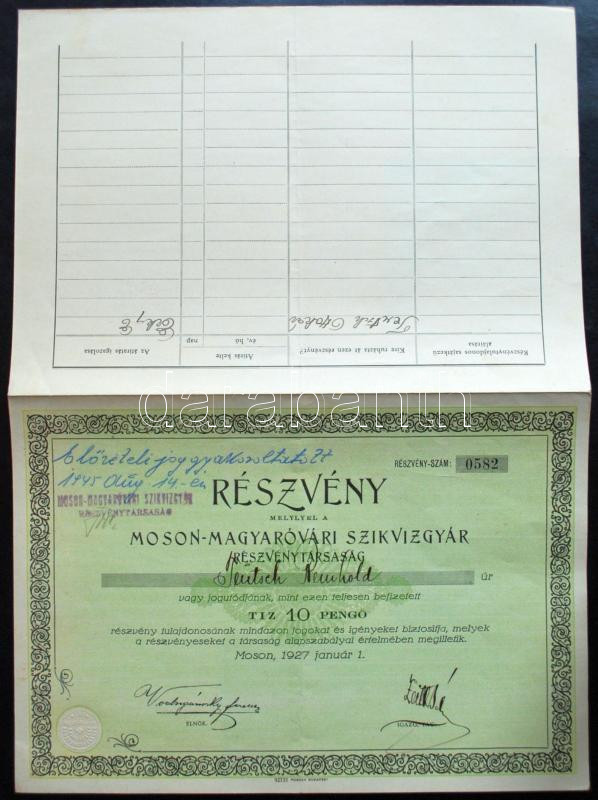 Részvénytulajdonos sajátkezű aláírása
Kire ruházta át ezen részvényt?
Átírás kelte
év, hó
nap
Az átírás igazolása
darabanth
Elővételi jog gyakoroltatott
1945 Aug 14.-én
MOSON-MAGYARÓVÁRI SZIKVIZGYÁR
RÉSZVÉNYTÁRSASÁG
RÉSZVÉNY-SZÁM: 0582
RÉSZVÉNY
MELYLYEL A
MOSON-MAGYARÓVÁRI SZIKVIZGYÁR
RÉSZVÉNYTÁRSASÁG
Deutsch Reinhold úr
vagy jogutódjának, mint ezen teljesen befizetett
TIZ 10 PENGŐ
részvény tulajdonosának mindazon jogokat és igényeket biztosítja, melyek
a részvényeseket a társaság alapszabályai értelmében megilletik.
Moson, 1927 január 1.
ELNÖK.
IGAZG. TAG.